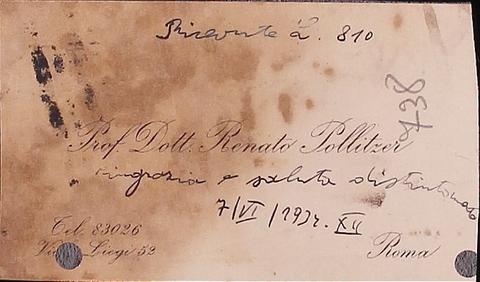 Ricevute L. 810
Prof. Dott. Renato Pollitzer
ringrazia e saluta distintamente
7/VI/1934. XII
Tel. 83026
Via Liegi 52
Roma
738